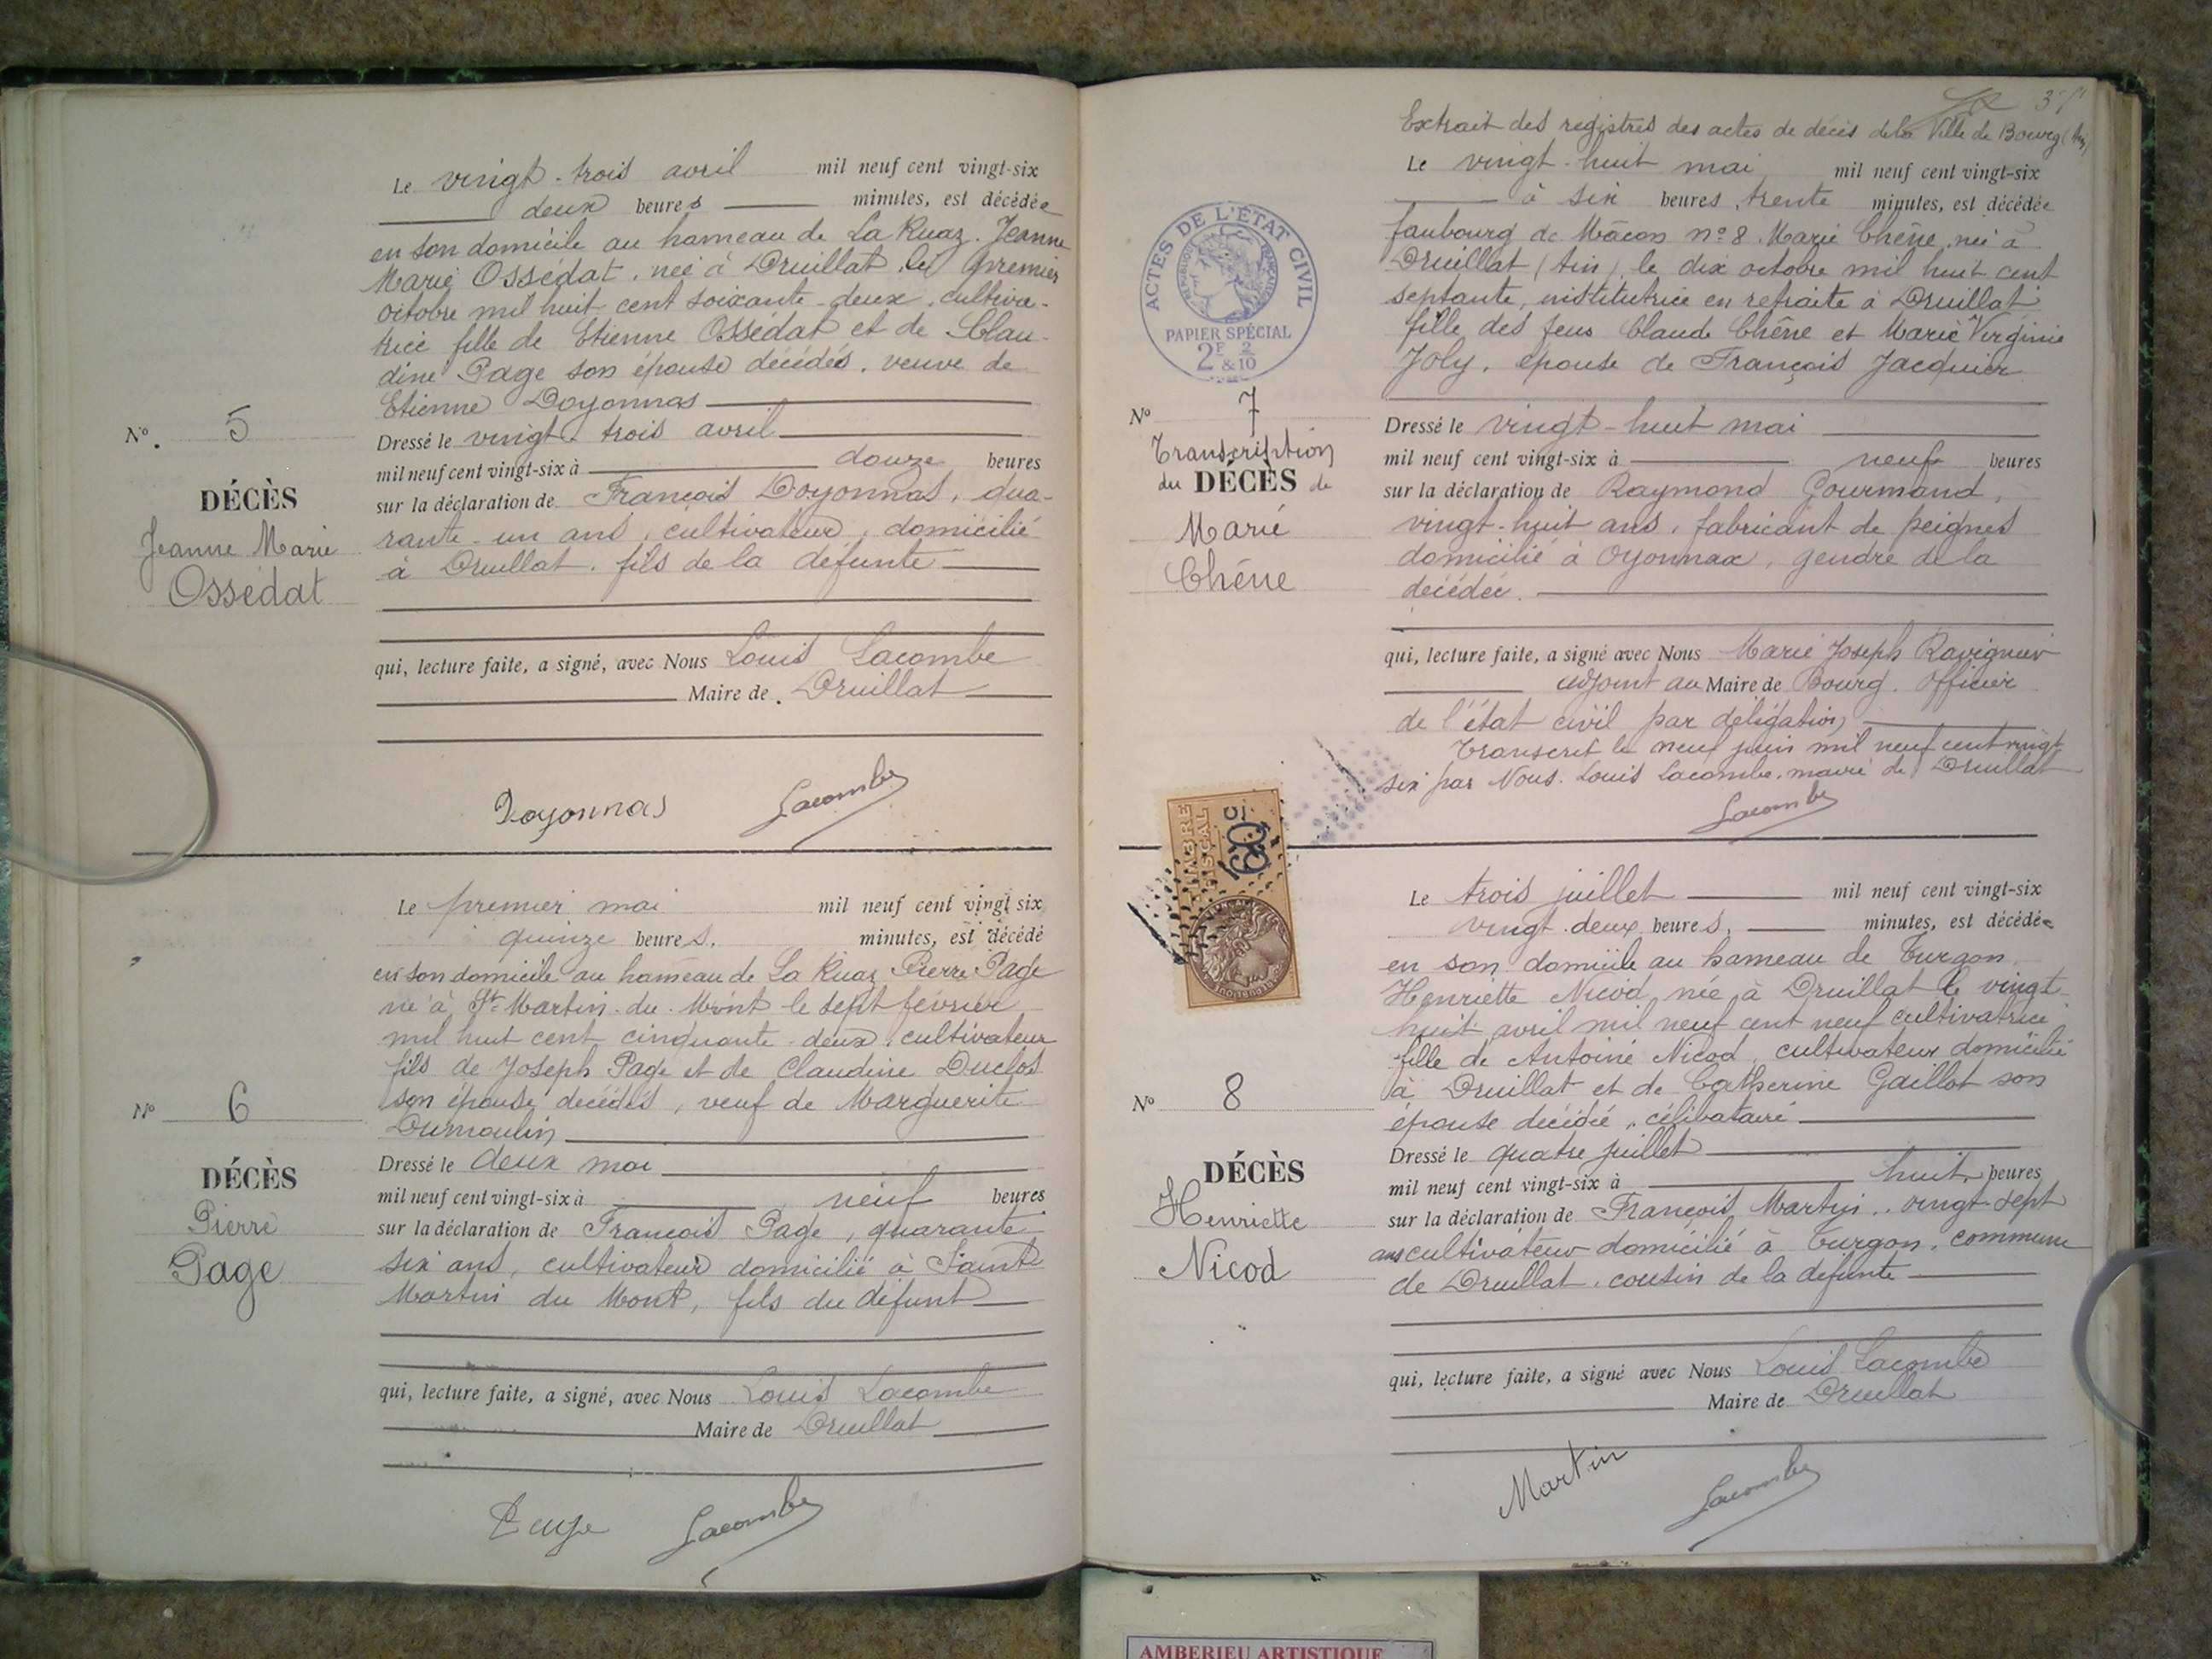 Le vingt-trois avril mil neuf cent vingt-six
deux heures minutes, est décédée
en son domicile au hameau de La Ruaz. Jeanne
Marie Ossédat, née à Druillat, le premier
octobre mil huit cent soixante-deux, cultiva-
trice fille de Etienne Ossédat et de Clau-
dine Page son épouse décédés, veuve de
Etienne Doyonnas
N° 5
Dressé le vingt-trois avril
mil neuf cent vingt-six à douze heures
DÉCÈS
sur la déclaration de François Doyonnas, qua-
Jeanne Marie
rante-un ans, cultivateur, domicilié
Ossédat
à Druillat, fils de la défunte
qui, lecture faite, a signé, avec Nous Louis Lacombe
Maire de Druillat
Doyonnas Lacombe
Le premier mai mil neuf cent vingt six
quinze heures, minutes, est décédé
en son domicile au hameau de La Ruaz Pierre Page
né à St Martin-du-Mont le sept février
mil huit cent cinquante-deux, cultivateur
fils de Joseph Page et de Claudine Duclos
son épouse décédés, veuf de Marguerite
N° 6
Dumoulin
Dressé le deux mai
DÉCÈS
mil neuf cent vingt-six à neuf heures
Pierre
sur la déclaration de François Page, quarante
Page
six ans, cultivateur domicilié à Saint
Martin du Mont, fils du défunt
qui, lecture faite, a signé, avec Nous Louis Lacombe
Maire de Druillat
Page Lacombe
Extrait des registres des actes de décès de la Ville de Bourg (Ain)
Le vingt-huit mai mil neuf cent vingt-six
à six heures, trente minutes, est décédée
faubourg de Mâcon n° 8, Marie Chêne, née à
Druillat (Ain), le dix octobre mil huit cent
septante, institutrice en retraite à Druillat
fille des feus Claude Chêne et Marie Virginie
Joly, épouse de François Jacquier
ACTES DE L'ÉTAT CIVIL
RÉPUBLIQUE FRANÇAISE
PAPIER SPÉCIAL
2F 2
& 10
N° 7
Transcription
du DÉCÈS de
Marie
Chêne
Dressé le vingt-huit mai
mil neuf cent vingt-six à neuf heures
sur la déclaration de Raymond Gourmand,
vingt-huit ans, fabricant de peignes
domicilié à Oyonnax, gendre de la
décédée.
qui, lecture faite, a signé avec Nous Marie Joseph Ravignier
adjoint au Maire de Bourg. Officier
de l'état civil par délégation,
Transcrit le neuf juin mil neuf cent vingt
six par Nous. Louis Lacombe, maire de Druillat
Lacombe
TIMBRE
FISCAL
60c
Le trois juillet mil neuf cent vingt-six
vingt-deux heures, minutes, est décédée
en son domicile au hameau de Turgon,
Henriette Nicod née à Druillat le vingt
huit avril mil neuf cent neuf cultivatrice
fille de Antoine Nicod, cultivateur domicilié
à Druillat et de Catherine Gaillot son
épouse décédée, célibataire
N° 8
Dressé le quatre juillet
DÉCÈS
mil neuf cent vingt-six à huit heures
Henriette
sur la déclaration de François Martin, vingt-sept
Nicod
ans cultivateur domicilié à Turgon, commune
de Druillat, cousin de la défunte
qui, lecture faite, a signé avec Nous Louis Lacombe
Maire de Druillat
Martin Lacombe
AMBERIEU ARTISTIQUE